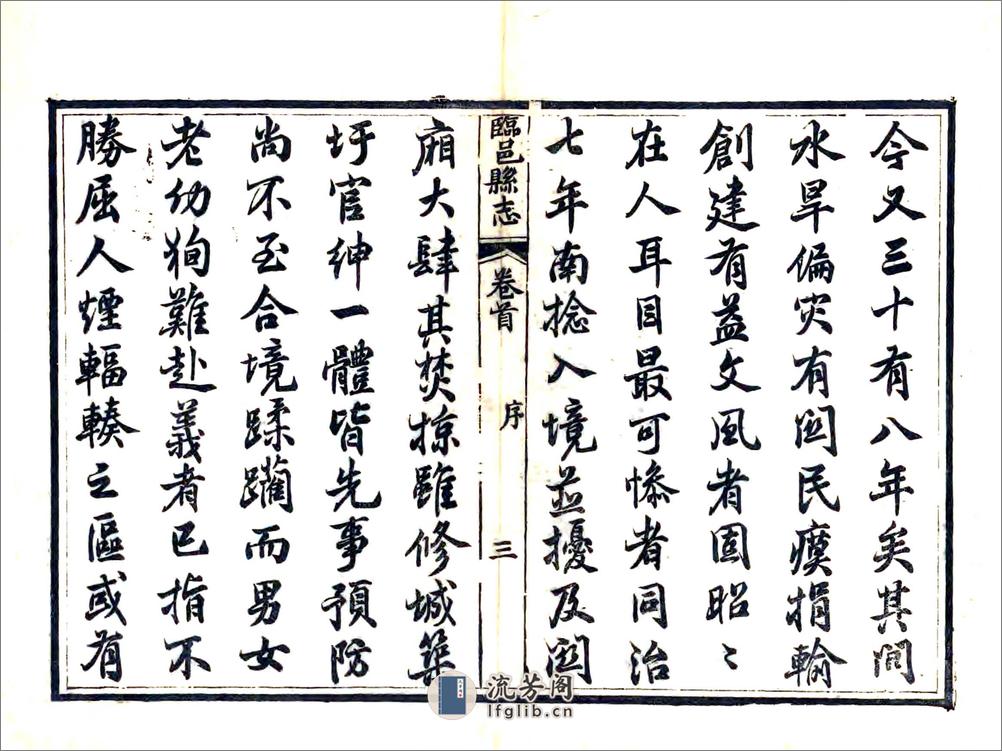 今又三十有八年矣其間
水旱偏灾有関民瘼捐輸
創建有益文風者固昭〻
在人耳目最可慘者同治
七年南捻入境並擾及関
臨邑縣志
卷首
序
三
廂大肆其焚掠雖修城築
圩官紳一體皆先事預防
尚不至合境蹂躪而男女
老幼狥難赴義者已指不
勝屈人煙輻輳之區或有
流芳阁
lfglib.cn